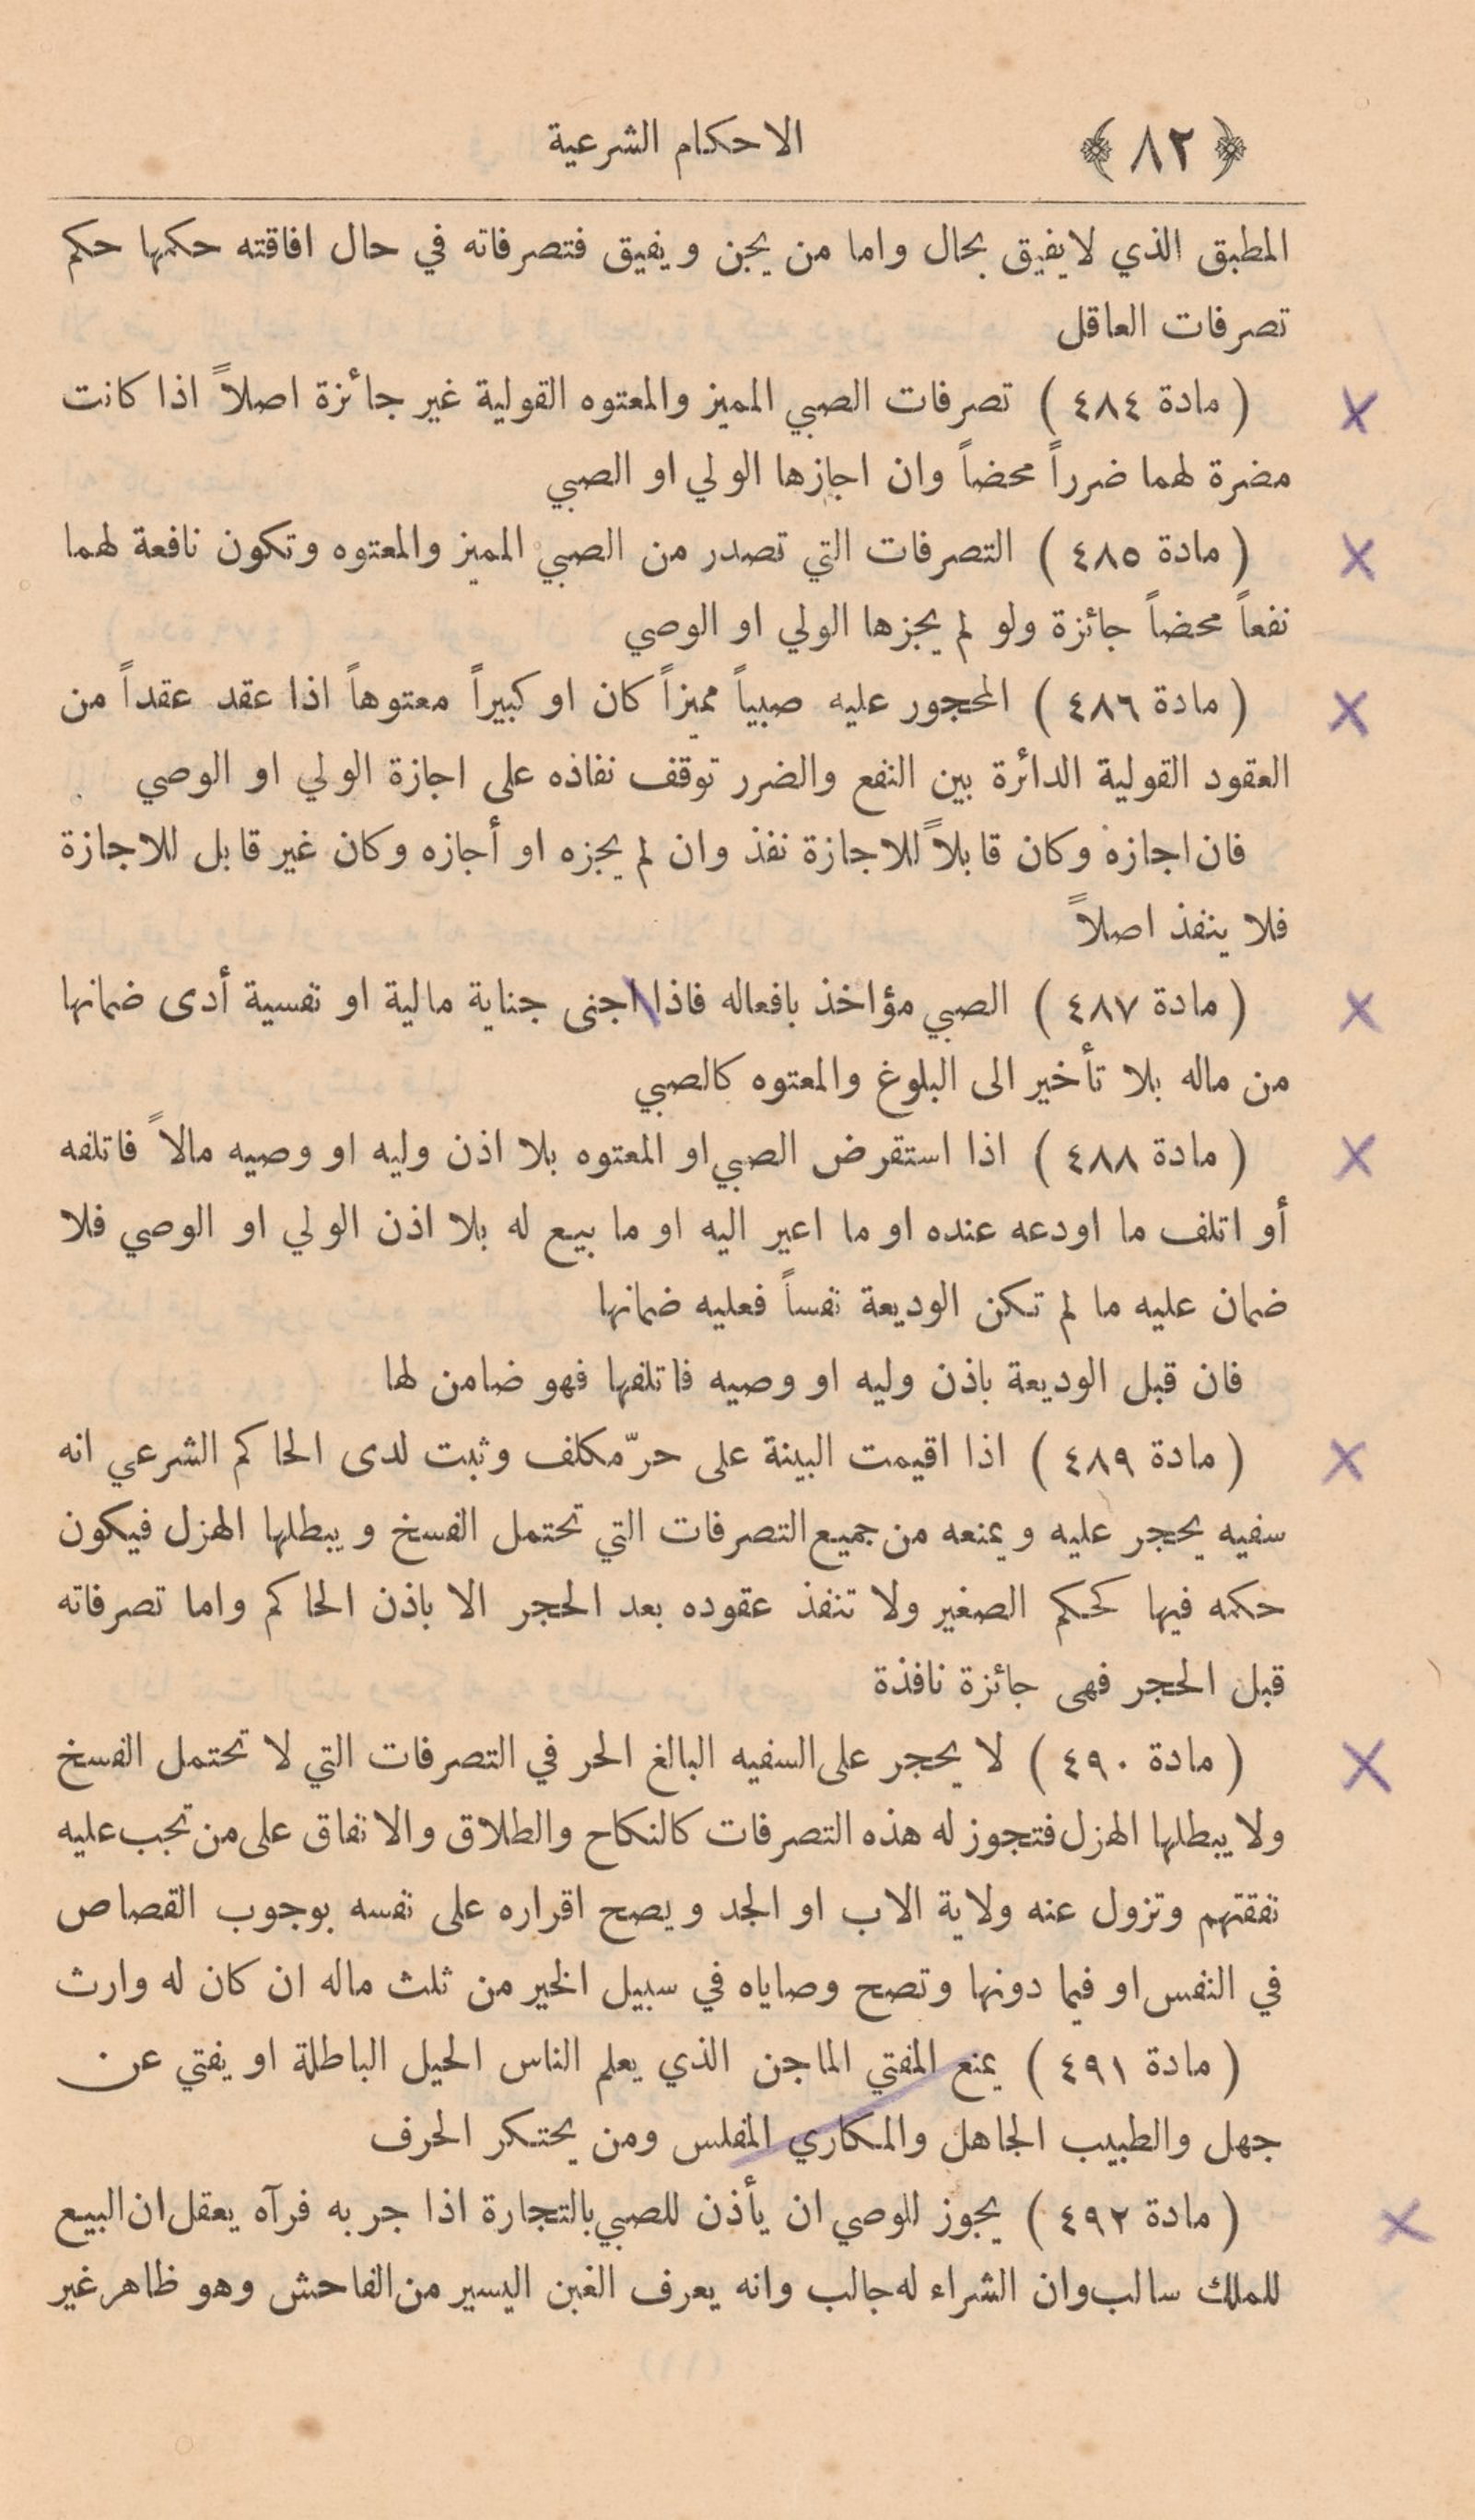 ﴿ ٨٢ ﴾ الاحكام الشرعية
المطبق الذي لا يفيق بحال واما من يجن ويفيق فتصرفاته في حال افاقته حكمها حكم
تصرفات العاقل
( مادة ٤٨٤ ) تصرفات الصبي المميز والمعتوه القولية غير جائزة اصلاً اذا كانت
مضرة لهما ضرراً محضاً وان اجازها الولي او الصبي
( مادة ٤٨٥ ) التصرفات التي تصدر من الصبي المميز والمعتوه وتكون نافعة لهما
نفعاً محضاً جائزة ولو لم يجزها الولي او الوصي
( مادة ٤٨٦ ) المحجور عليه صبياً مميزاً كان او كبيراً معتوهاً اذا عقد عقداً من
العقود القولية الدائرة بين النفع والضرر توقف نفاذه على اجازة الولي او الوصي
فان اجازه وكان قابلاً للاجازة نفذ وان لم يجزه او أجازه وكان غير قابل للاجازة
فلا ينفذ اصلاً
( مادة ٤٨٧ ) الصبي مؤاخذ بافعاله فاذا اجنى جناية مالية او نفسية أدى ضمانها
من ماله بلا تأخير الى البلوغ والمعتوه كالصبي
( مادة ٤٨٨ ) اذا استقرض الصبي او المعتوه بلا اذن وليه او وصيه مالاً فاتلفه
أو اتلف ما اودعه عنده او ما اعير اليه او ما بيع له بلا اذن الولي او الوصي فلا
ضمان عليه ما لم تكن الوديعة نفساً فعليه ضمانها
فان قبل الوديعة باذن وليه او وصيه فاتلفها فهو ضامن لها
( مادة ٤٨٩ ) اذا اقيمت البينة على حرّ مكلف وثبت لدى الحاكم الشرعي انه
سفيه يحجر عليه ويمنعه من جميع التصرفات التي تحتمل الفسخ ويبطلها الهزل فيكون
حكمه فيها كحكم الصغير ولا تنفذ عقوده بعد الحجر الا باذن الحاكم واما تصرفاته
قبل الحجر فهى جائزة نافذة
( مادة ٤٩٠ ) لا يحجر على السفيه البالغ الحر في التصرفات التي لا تحتمل الفسخ
ولا يبطلها الهزل فتجوز له هذه التصرفات كالنكاح والطلاق والانفاق على من تجب عليه
نفقتهم وتزول عنه ولاية الاب او الجد ويصح اقراره على نفسه بوجوب القصاص
في النفس او فيما دونها وتصح وصاياه في سبيل الخير من ثلث ماله ان كان له وارث
( مادة ٤٩١ ) يمنع المفتي الماجن الذي يعلم الناس الحيل الباطلة او يفتي عن
جهل والطبيب الجاهل والمكاري المفلس ومن يحتكر الحرف
( مادة ٤٩٢ ) يجوز للوصي ان يأذن للصبي بالتجارة اذا جربه فرآه يعقل ان البيع
للملك سالب وان الشراء له جالب وانه يعرف الغبن اليسير من الفاحش وهو ظاهر غير